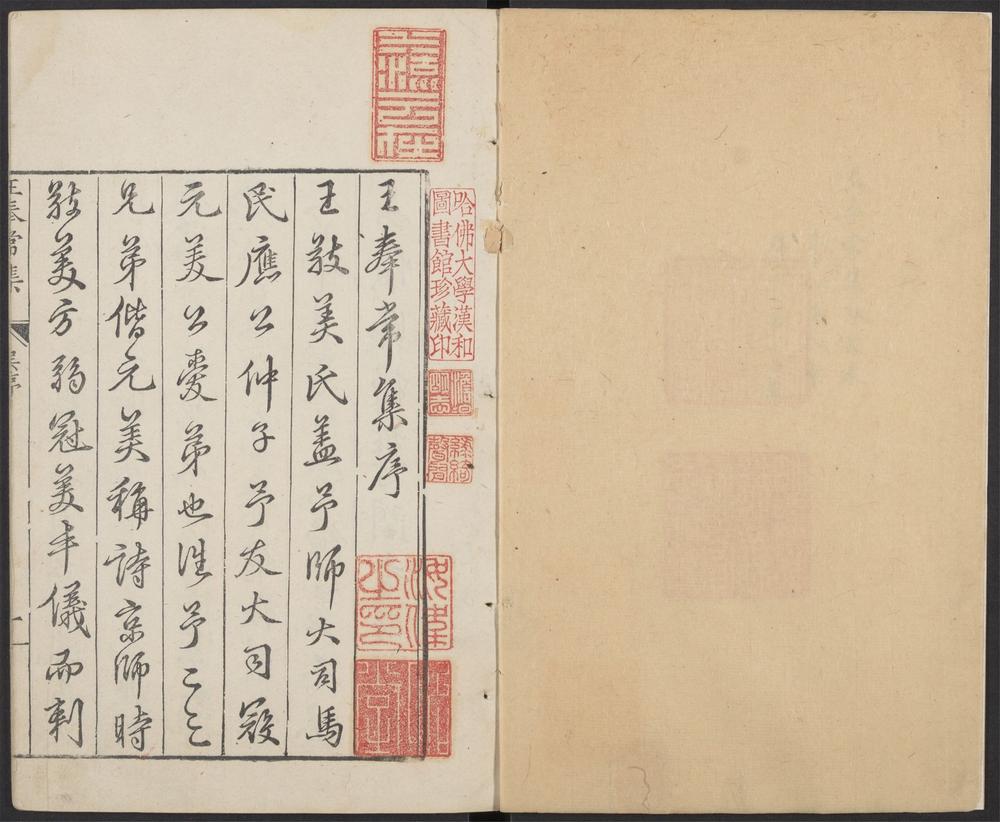 王奉常集序
王敬美氏蓋予師大司馬
民應公仲子予友大司寇
元美公愛弟也往予二三
兄弟偕元美稱詩京師時
敬美方弱冠美丰儀而刺
王奉常集
哈佛大學漢和
圖書館珍藏印